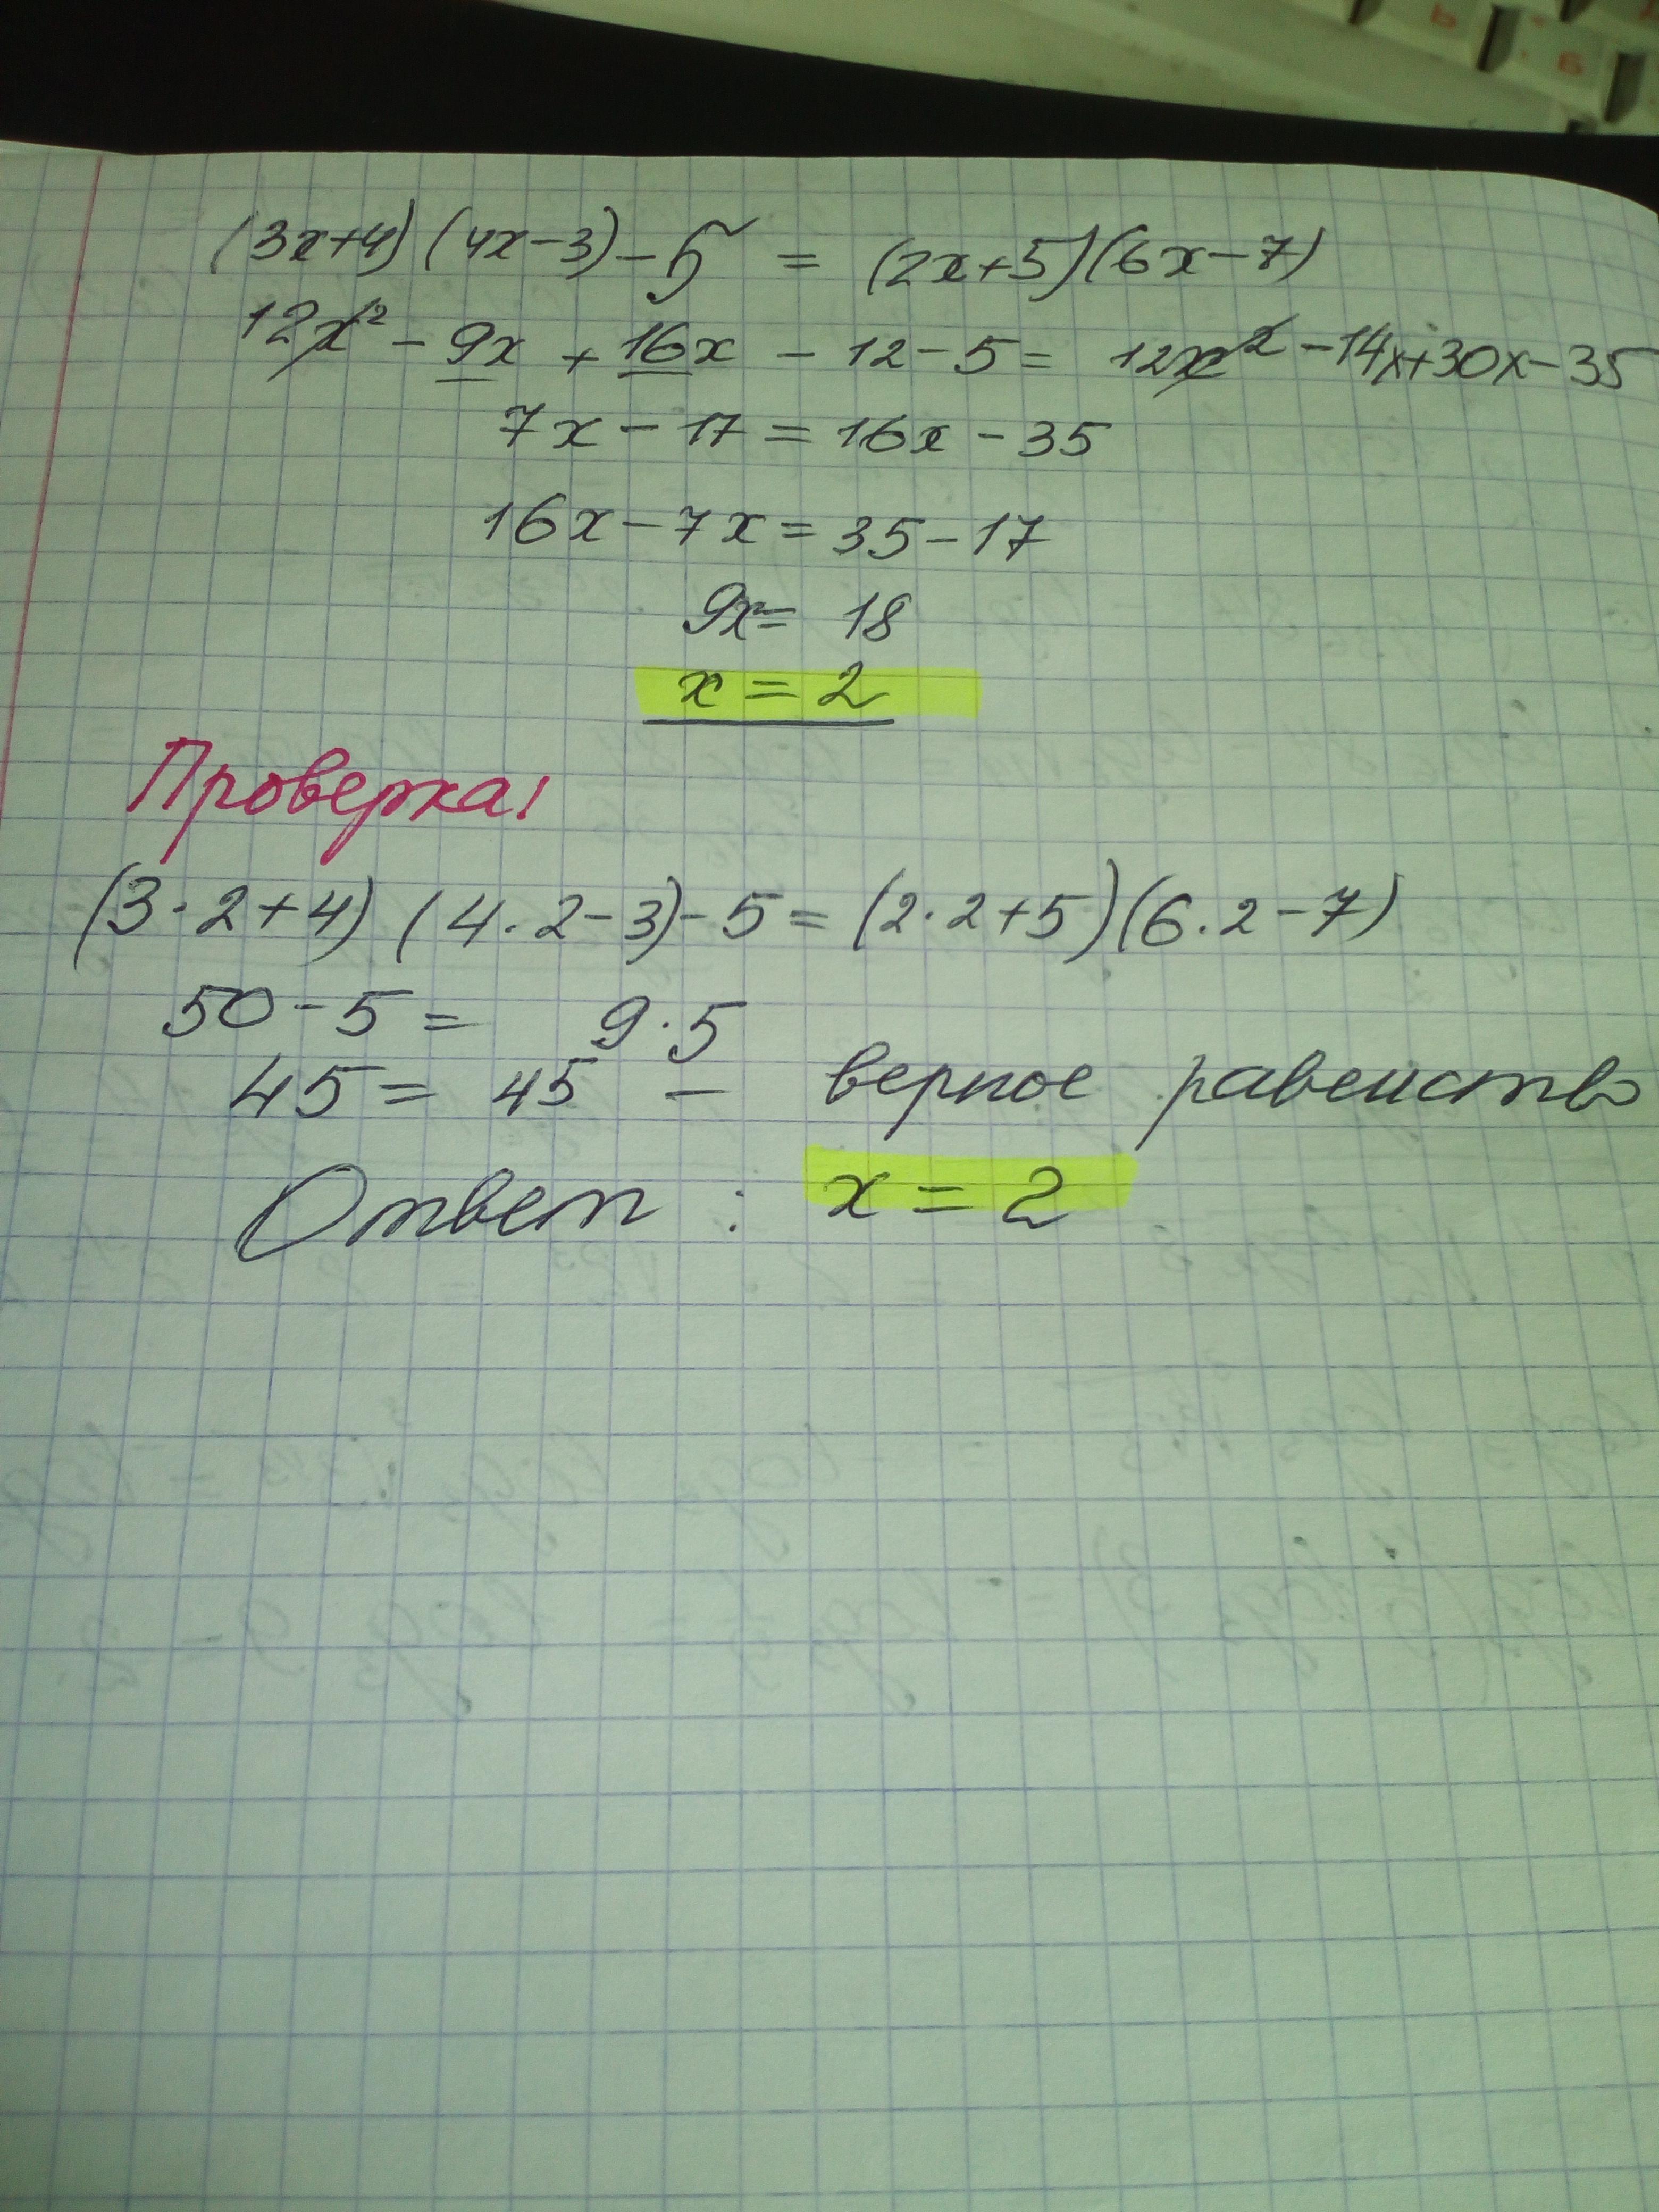 (3x+4)(4x-3)-5 = (2x+5)(6x-7)
12x² - 9x + 16x - 12 - 5 = 12x² - 14x + 30x - 35
7x - 17 = 16x - 35
16x - 7x = 35 - 17
9x = 18
x = 2
Проверка!
(3·2+4)(4·2-3)-5 = (2·2+5)(6·2-7)
50 - 5 = 9·5
45 = 45 - верное равенство
Ответ: x = 2